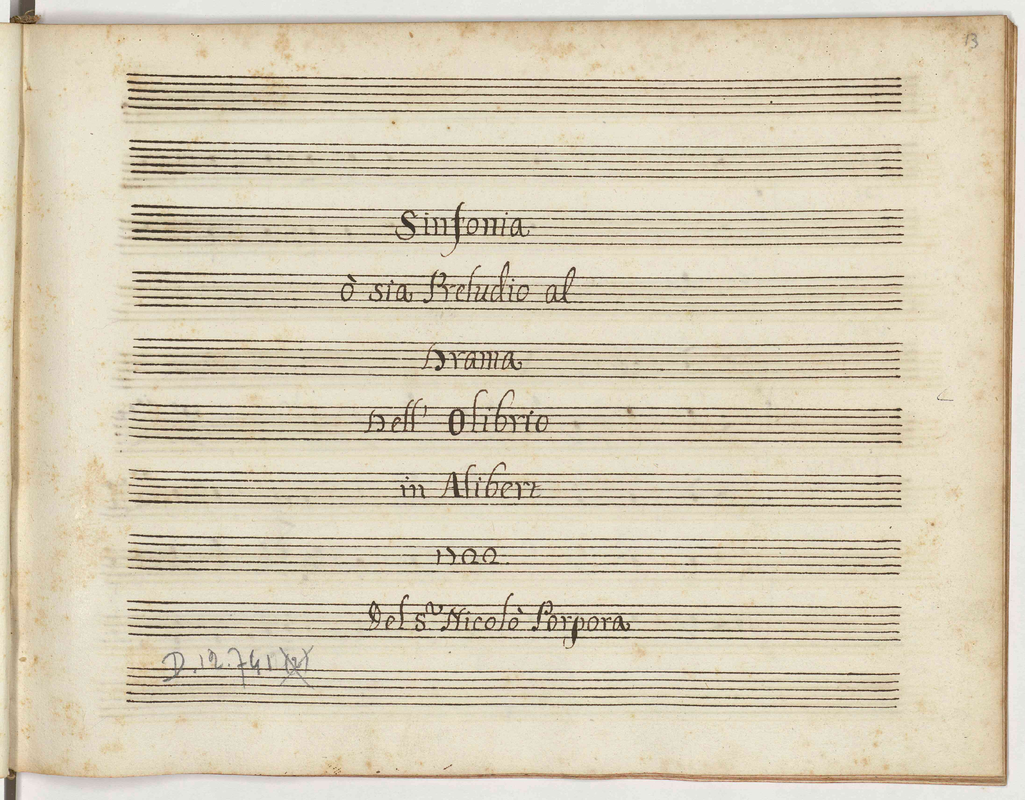 13
Sinfonia
ò sia Preludio al
Drama
Dell' Olibrio
in Alibert
1722.
Del S.r Nicolò Porpora
D.12.741